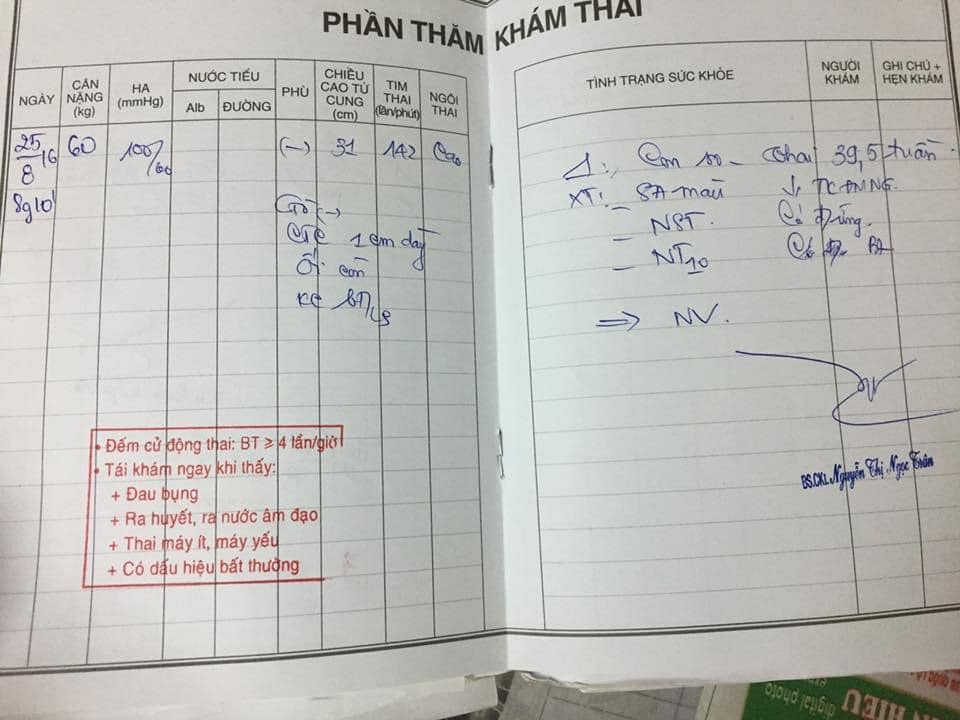 PHẦN THĂM KHÁM THAI
NGÀY
CÂN NẶNG (kg)
HA (mmHg)
NƯỚC TIỂU
Alb
ĐƯỜNG
PHÙ
CHIỀU CAO TỬ CUNG (cm)
TIM THAI (lần/phút)
NGÔI THAI
25/8/16
60
100/60
(-)
31
142
Cao
8g10'
Gò (-)
CTC 1 cm dày
Ối còn
KC BT/LS
• Đếm cử động thai: BT ≥ 4 lần/giờ
• Tái khám ngay khi thấy:
+ Đau bụng
+ Ra huyết, ra nước âm đạo
+ Thai máy ít, máy yếu
+ Có dấu hiệu bất thường
TÌNH TRẠNG SỨC KHỎE
NGƯỜI KHÁM
GHI CHÚ + HẸN KHÁM
Con so - thai 39,5 tuần
XT: - SA màu
- NST.
- NT10
⇒ NV.
BS.CKI. Nguyễn Thị Ngọc Trân
HIEU
digital photo